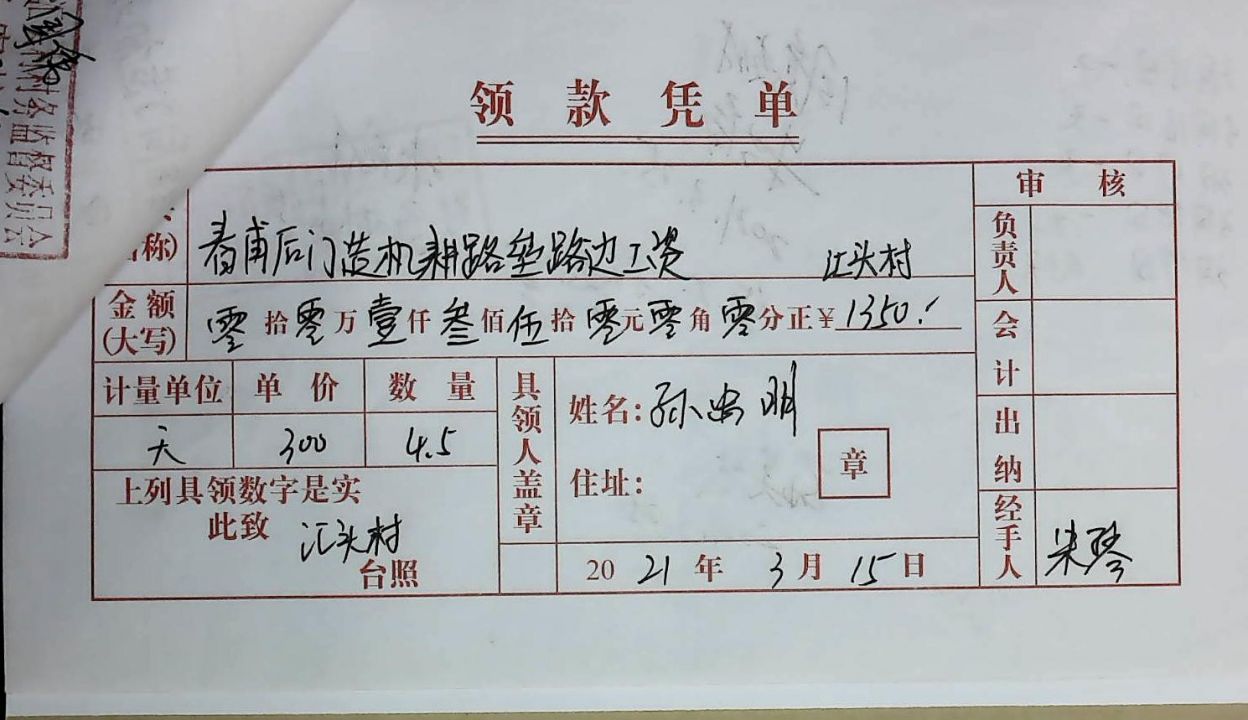 村务监督委员会
领款凭单
称) 着甫后门造机耕路垫路边工资 江头村
金额(大写) 零拾零万壹仟叁佰伍拾零元零角零分正¥1350.
计量单位 单价 数量
天 300 4.5
上列具领数字是实
此致 江头村
台照
具领人盖章
姓名:孙忠明
住址: 章
2021年3月15日
审核
负责人
会计
出纳
经手人 朱琴